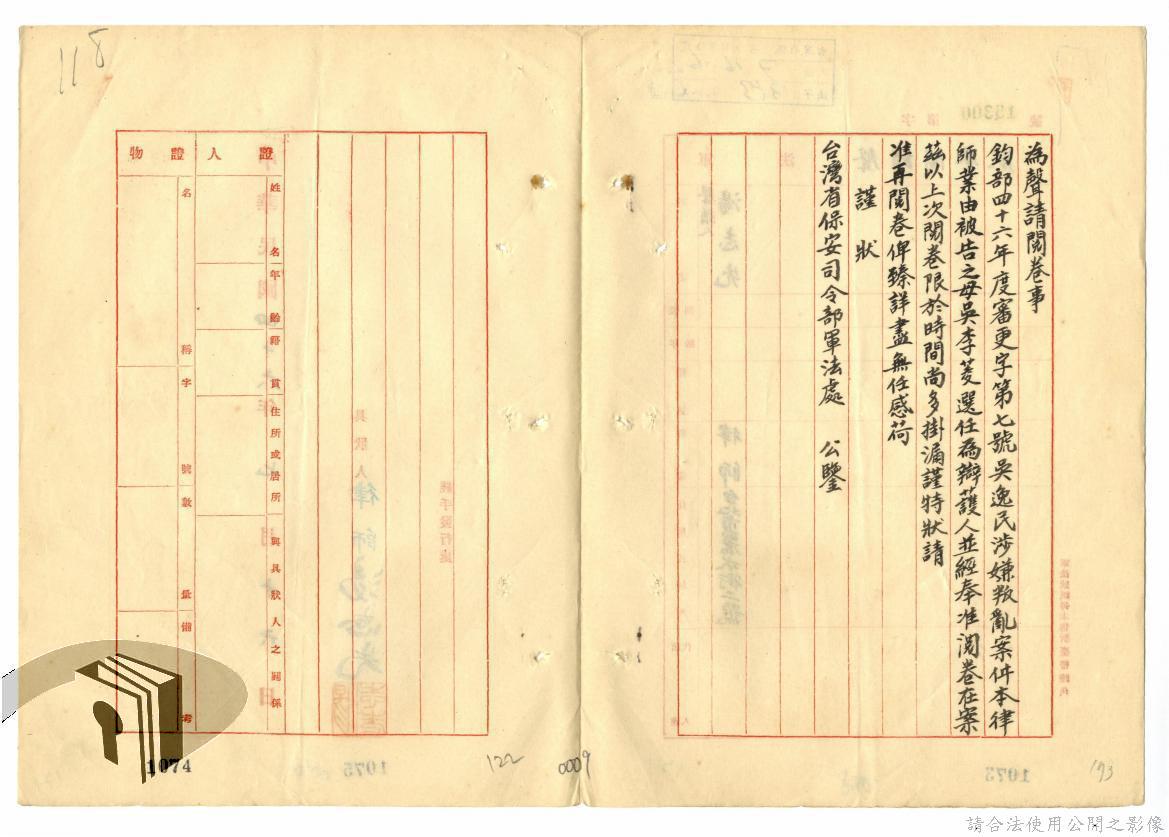 為聲請閱卷事
鈞部四十六年度審更字第七號吳逸民涉嫌叛亂案件本律
師業由被告之母吳李菱選任為辯護人並經奉准閱卷在案
茲以上次閱卷限於時間尚多掛漏謹特狀請
准再閱卷俾臻詳盡無任感荷
謹狀
台灣省保安司令部軍法處 公鑒
證人
姓名
年齡
籍貫
住所或居所
與具狀人之關係
證物
名稱
字號
數量
備考
118
1074
122
0009
193
請合法使用公開之影像